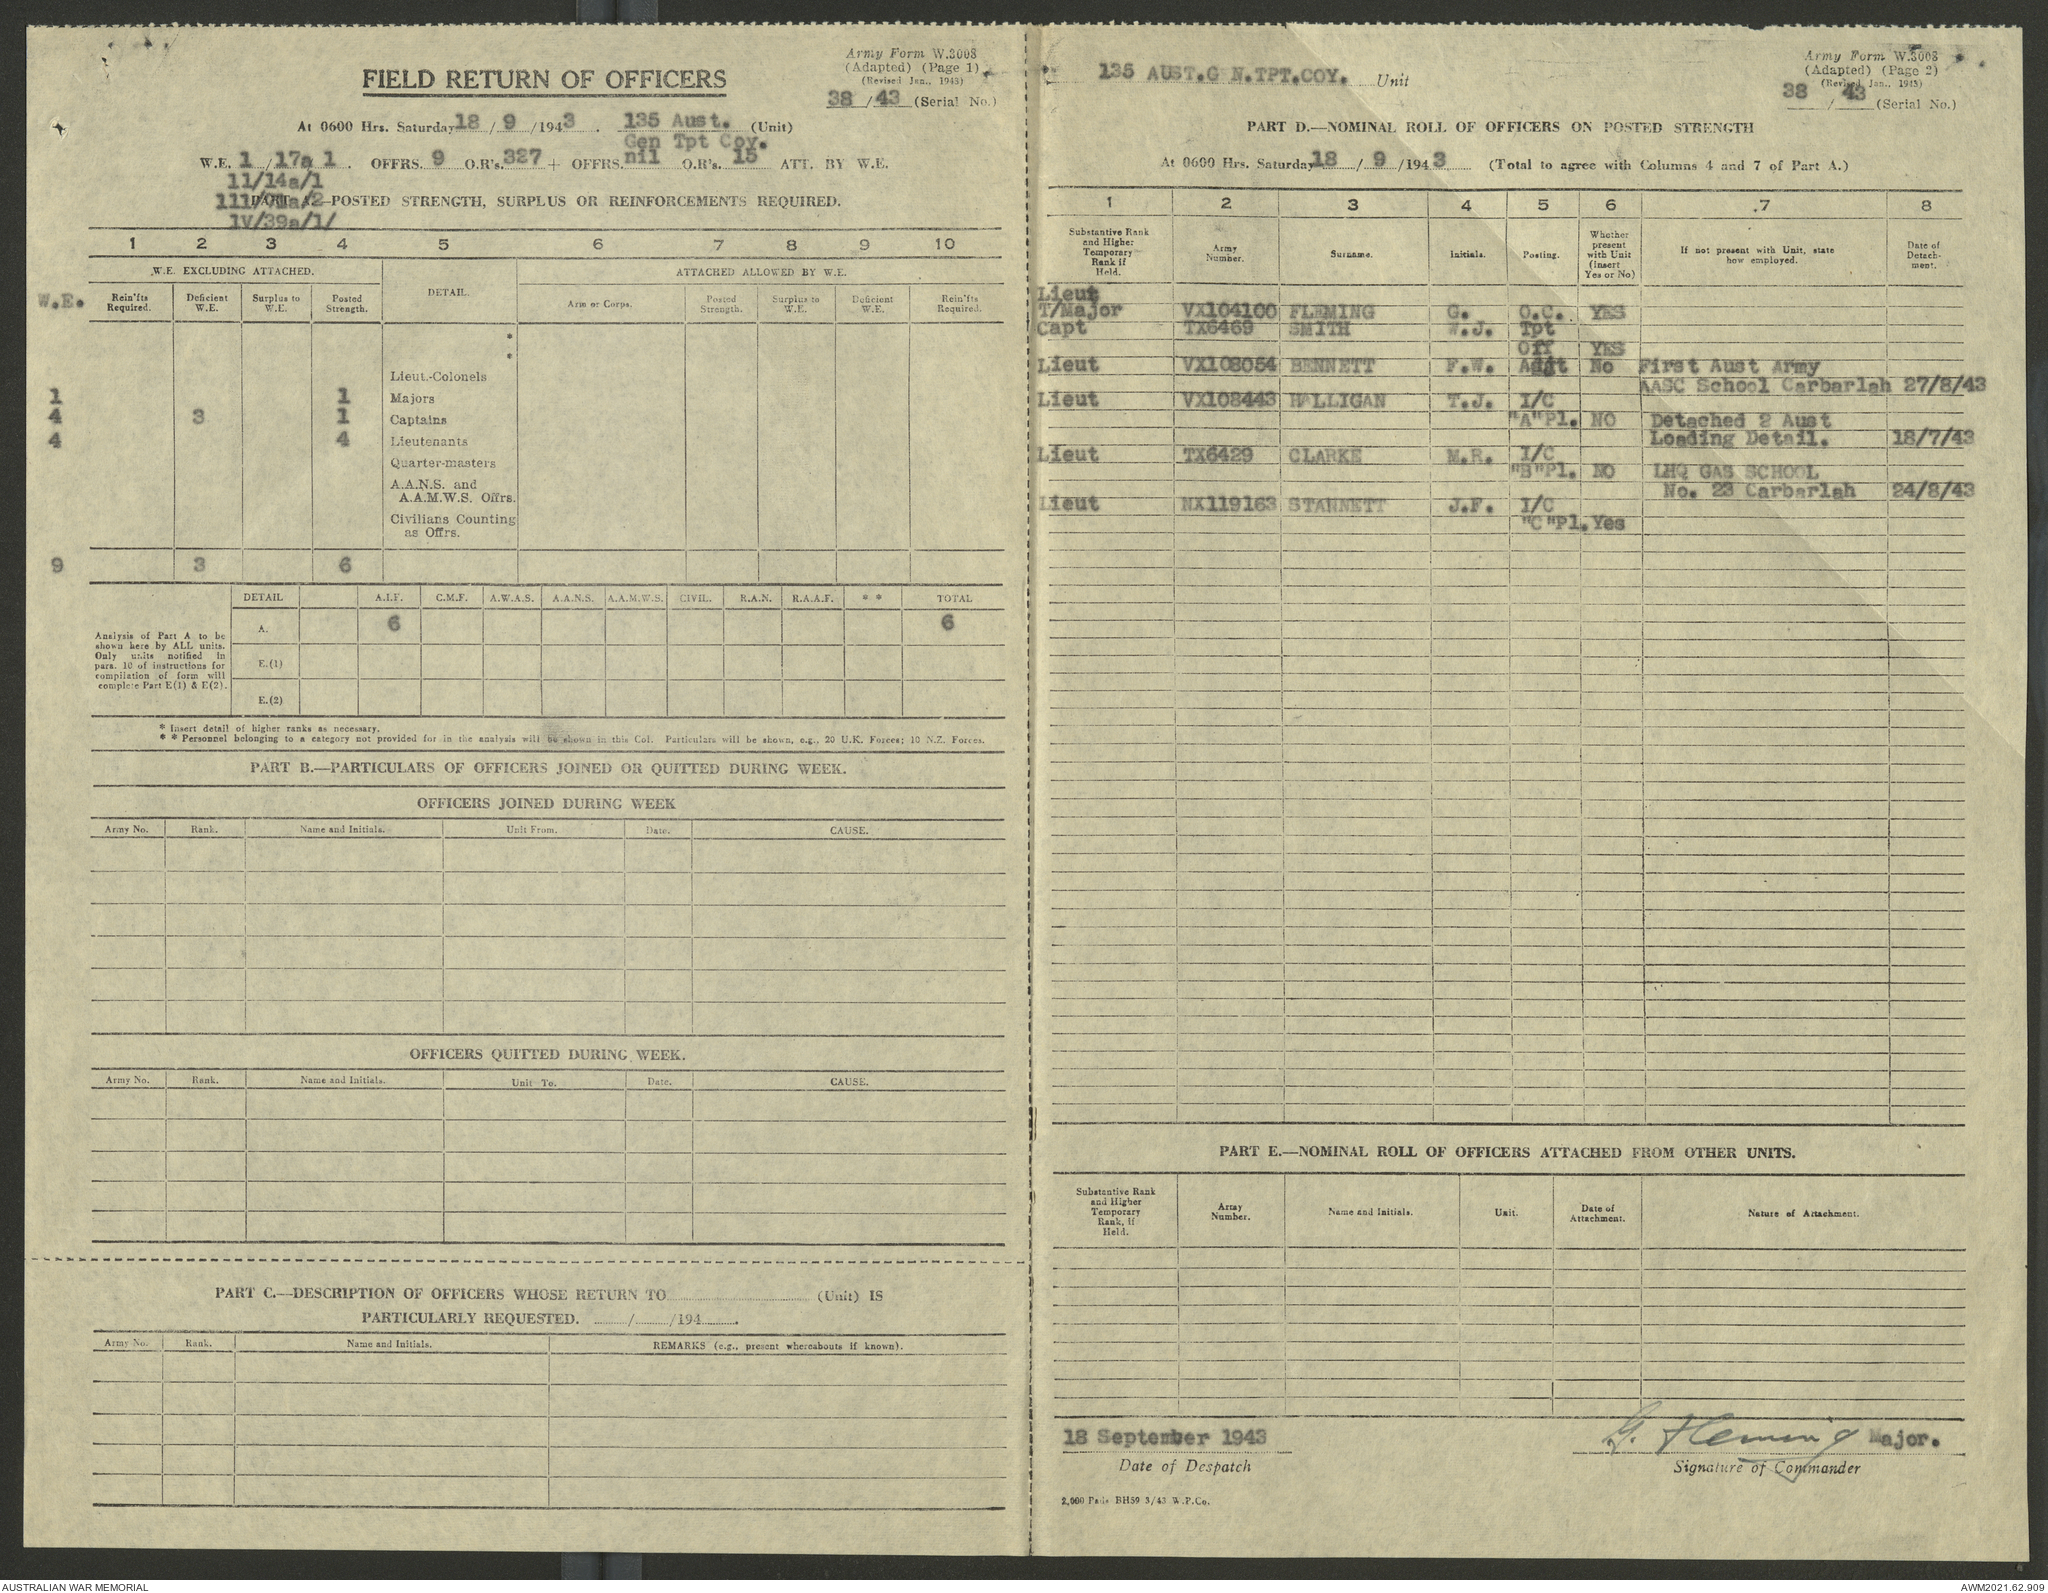 Army Form W.3008
(Adapted) (Page 1)
(Revised Jan., 1943)
FIELD RETURN OF OFFICERS
38 / 43 (Serial No.)
At 0600 Hrs. Saturday 18 / 9 /1943. 135 Aust. (Unit)
Gen Tpt Coy.
W.E. 1 / 17a 1. OFFRS. 9 O.R's. 327 + OFFRS. nil O.R's. 15 ATT. BY W.E.
11/14a/1
/2—POSTED STRENGTH, SURPLUS OR REINFORCEMENTS REQUIRED.
1V/39a/1/
1 2 3 4 5 6 7 8 9 10
W.E. EXCLUDING ATTACHED. DETAIL. ATTACHED ALLOWED BY W.E.
W.E. Rein'fts Required. Deficient W.E. Surplus to W.E. Posted Strength. Arm or Corps. Posted Strength. Surplus to W.E. Deficient W.E. Rein'fts Required.
*
*
Lieut.-Colonels
1 1 Majors
4 3 1 Captains
4 4 Lieutenants
Quarter-masters
A.A.N.S. and
A.A.M.W.S. Offrs.
Civilians Counting
as Offrs.
9 3 6
DETAIL A.I.F. C.M.F. A.W.A.S. A.A.N.S. A.A.M.W.S. CIVIL. R.A.N. R.A.A.F. * * TOTAL
A. 6 6
Analysis of Part A to be
shown here by ALL units.
Only units notified in
pars. 10 of instructions for
compilation of form will
complete Part E(1) & E(2).
E.(1)
E.(2)
* Insert detail of higher ranks as necessary.
* * Personnel belonging to a category not provided for in the analysis will be shown in this Col. Particulars will be shown, e.g., 20 U.K. Forces; 10 N.Z. Forces.
PART B.—PARTICULARS OF OFFICERS JOINED OR QUITTED DURING WEEK.
OFFICERS JOINED DURING WEEK
Army No. Rank. Name and Initials. Unit From. Date. CAUSE.
OFFICERS QUITTED DURING WEEK.
Army No. Rank. Name and Initials. Unit To. Date. CAUSE.
PART C.—DESCRIPTION OF OFFICERS WHOSE RETURN TO (Unit) IS
PARTICULARLY REQUESTED. / /194 .
Army No. Rank. Name and Initials. REMARKS (e.g., present whereabouts if known).
Army Form W.3008
(Adapted) (Page 2)
(Revised Jan., 1943)
135 AUST.G N.TPT.COY. Unit
38 / 43 (Serial No.)
PART D.—NOMINAL ROLL OF OFFICERS ON POSTED STRENGTH
At 0600 Hrs. Saturday 18 / 9 /1943 (Total to agree with Columns 4 and 7 of Part A.)
1 2 3 4 5 6 .7 8
Substantive Rank and Higher Temporary Rank if Held. Army Number. Surname. Initials. Posting. Whether present with Unit (insert Yes or No) If not present with Unit, state how employed. Date of Detachment.
Lieut
T/Major VX104100 FLEMING G. O.C. YES
Capt TX6469 SMITH W.J. Tpt
Off YES
Lieut VX108054 BENNETT F.W. Adjt No First Aust Army
AASC School Carbarlah 27/8/43
Lieut VX108443 HALLIGAN T.J. I/C
"A"Pl. NO Detached 2 Aust
Loading Detail. 18/7/43
Lieut TX6429 CLARKE M.R. I/C
"B"Pl. NO LHQ GAS SCHOOL
No. 23 Carbarlah 24/8/43
Lieut NX119163 STANNETT J.F. I/C
"C"Pl. Yes
PART E.—NOMINAL ROLL OF OFFICERS ATTACHED FROM OTHER UNITS.
Substantive Rank and Higher Temporary Rank, if Held. Army Number. Name and Initials. Unit. Date of Attachment. Nature of Attachment.
18 September 1943 G. Fleming Major.
Date of Despatch Signature of Commander
2,000 Pads BH59 3/43 W.P.Co.
AUSTRALIAN WAR MEMORIAL AWM2021.62.909